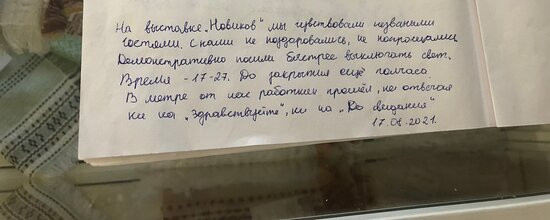 На выставке „Новиков" мы чувствовали незваными
гостями. С нами не поздоровались, не попрощались
Демонстративно пошли быстрее выключать свет.
Время – 17-27. До закрытия ещё полчаса
В метре от нас работник прошёл, не отвечая
ни на „здравствуйте", ни на „До свидания"
17.08.2021.